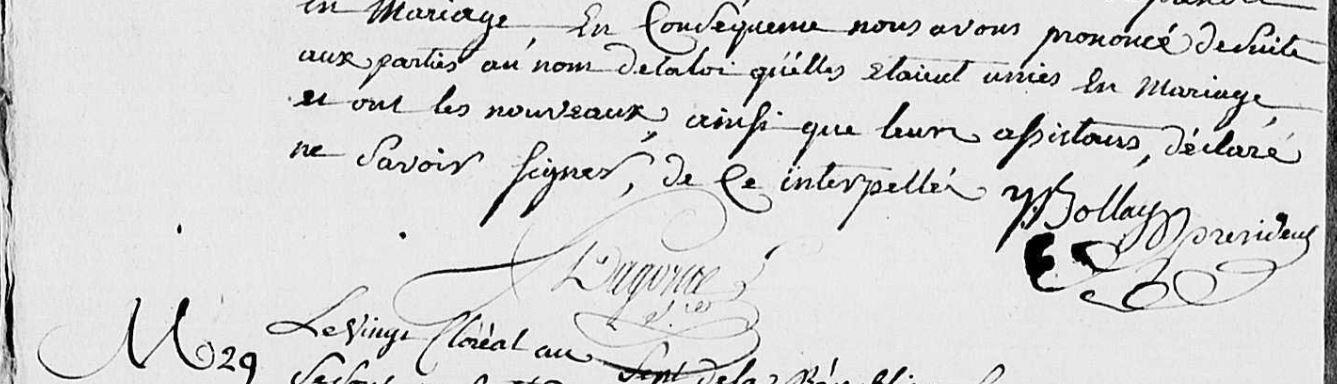 en Mariage, En Conséquence nous avons prononcé desuite
aux parties au nom delaloi qu'elles etaient unies En Mariage,
et ont les nouveaux, ainsi que leurs assistans, déclaré
ne savoir signer, de Ce interpellés Bollay president
Dagorne
M 29
Le vingt floréal an sept dela République